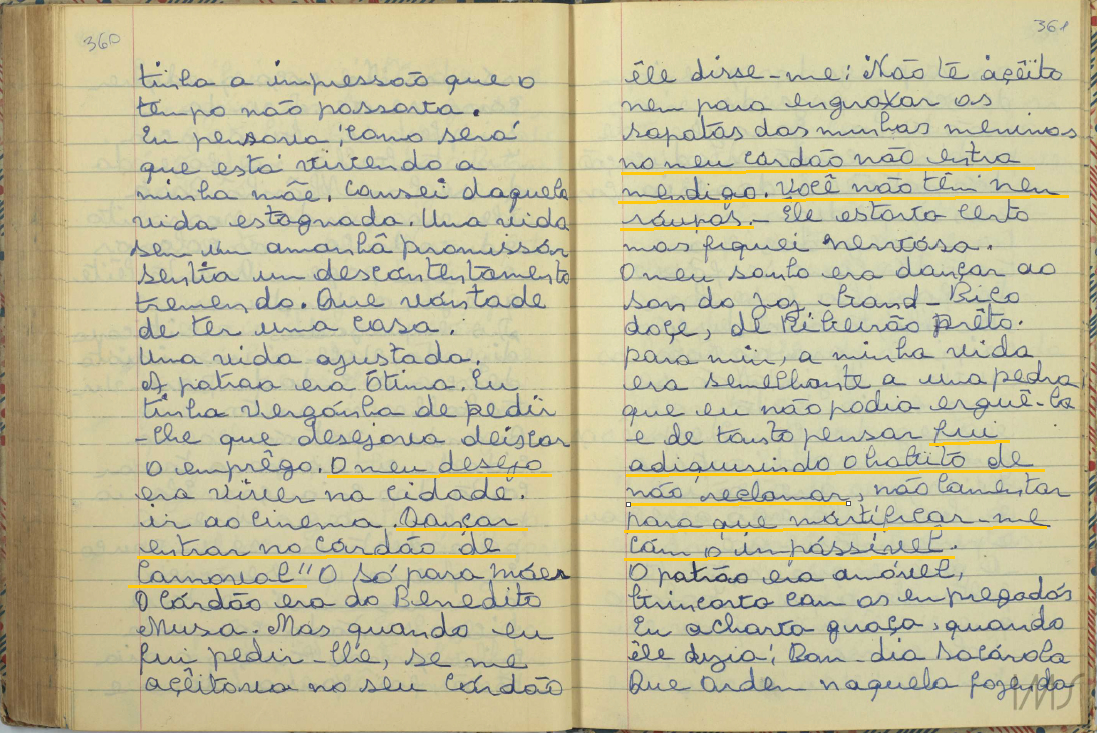 360
tinha a impressão que o
tempo não passava.
Eu pensava: Como será
que está vivendo a
minha mãe. Cansei daquela
vida estagnada. Uma vida
sem um amanhã promissór
sentia um descontentamento
tremendo. Que vóntade
de ter uma casa.
Uma vida ajustada.
A patroa era ótima. Eu
tinha vergónha de pedir
-lhe que desejava deixar
o emprêgo. O meu desejo
era viver na cidade.
ir ao cinema. Dançar
entrar no córdão de
Carnaval" O só para mães
O córdão era do Benedito
Musa. Mas quando eu
fui pedir-lhe, se me
açêitava no seu córdão
361
êle disse-me: Não te açêito
nem para engraxar os
sapatos das minhas meninas
no meu córdão não entra
mendigo. Você não têm nem
róupas.- Ele estava certo
mas fiquei nervósa.
O meu sonho era dançar ao
son do Jaz-band-Bico
doçe, de Ribeirão prêto.
para mim, a minha vida
era semelhante a uma pedra
que eu não pódia erguê-la
e de tanto pensar fui
adiquirindo o habito de
não reclamar, não lamentar
para que mórtificar-me
cóm o impóssivel.
O patrão era amóvel,
brincava com os empregados
Eu achava graça, quando
êle dizia: Bom-dia Socárola
Que ordem naquela fazenda
IMS